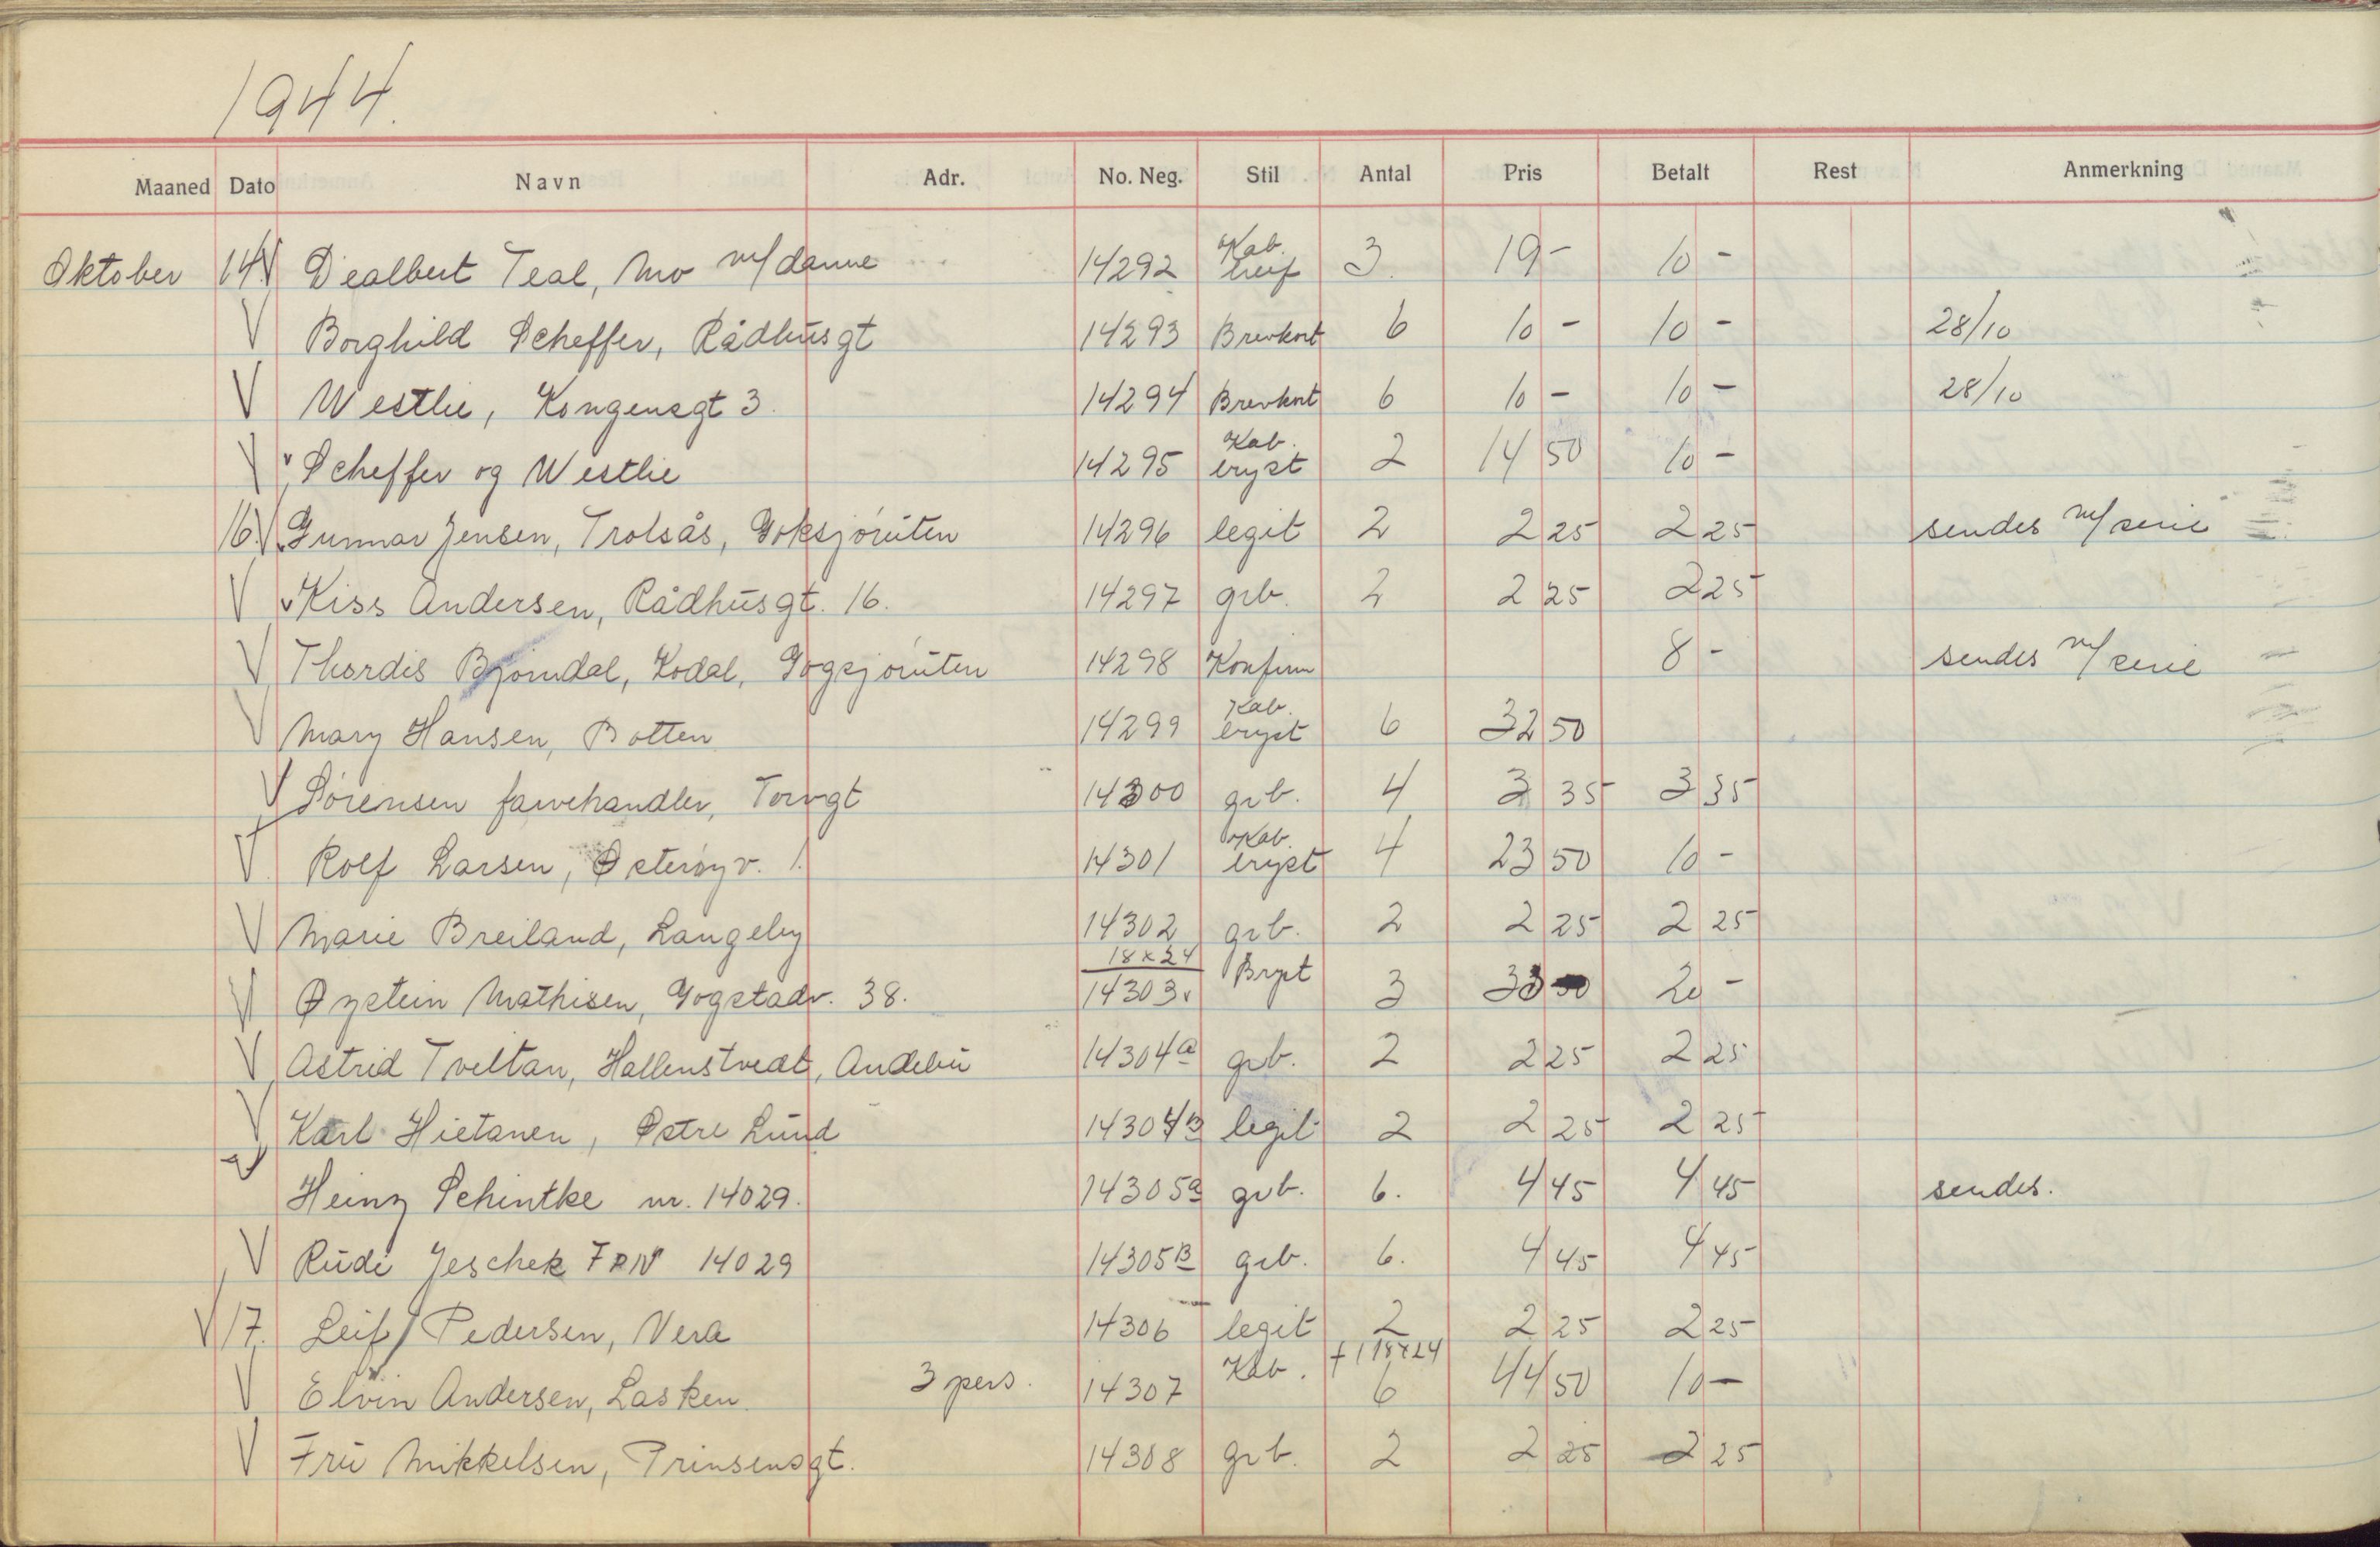 1944.
Maaned Dato Navn Adr. No. Neg. Stil Antal Pris Betalt Rest Anmerkning
Oktober 14. V Dealbert Teal, Mo m/dame 14292 Kab. 3. 19 - 10 -
V Borghild Scheffer, Rådhusgt 14293 Brevkort 6 10 - 10 - 28/10
V Westlie, Kongensgt 3. 14294 Brevkort 6 10 - 10 - 28/10
V v Scheffer og Westlie 14295 Kab. bryst 2 14 50 10 -
16. V Gunnar Jensen, Trolsås, Goksjøruten 14296 legit 2 2 25 2 25 sendes m/serie
V v Kiss Andersen, Rådhusgt. 16. 14297 grb. 2 2 25 2 25
V Thordis Bjørndal, Kodal, Gogsjøruten 14298 Konfirm 8 - sendes m/serie
V Mary Hansen, Botten 14299 Kab. bryst 6 32 50
V Sørensen farvehandler, Torvgt 14300 grb. 4 3 35 3 35
V Rolf Larsen, Østerøyv. 1. 14301 Kab. bryst 4 23 50 10 -
V Marie Breiland, Langeby 14302 grb. 2 2 25 2 25
V Øystein Mathisen, Gogstadv. 38. 18x24 14303 v Bryst 3 33 20 -
V Astrid Tveitan, Hallenstvedt, Andebu 14304a grb. 2 2 25 2 25
V Karl Hietanen, Østre Lund 14304B legit 2 2 25 2 25
V Heinz Schintke nr. 14029. 14305a grb. 6. 4 45 4 45 sendes.
V Rudi Jeschek FPN 14029 14305B grb. 6. 4 45 4 45
V 17. Leif Pedersen, Vera 14306 legit 2 2 25 2 25
V Elvin Andersen, Lasken. 3 pers. 14307 Kab. + 1 18x24 6 44 50 10 -
V Fru Mikkelsen, Prinsensgt. 14308 grb. 2 2 25 2 25